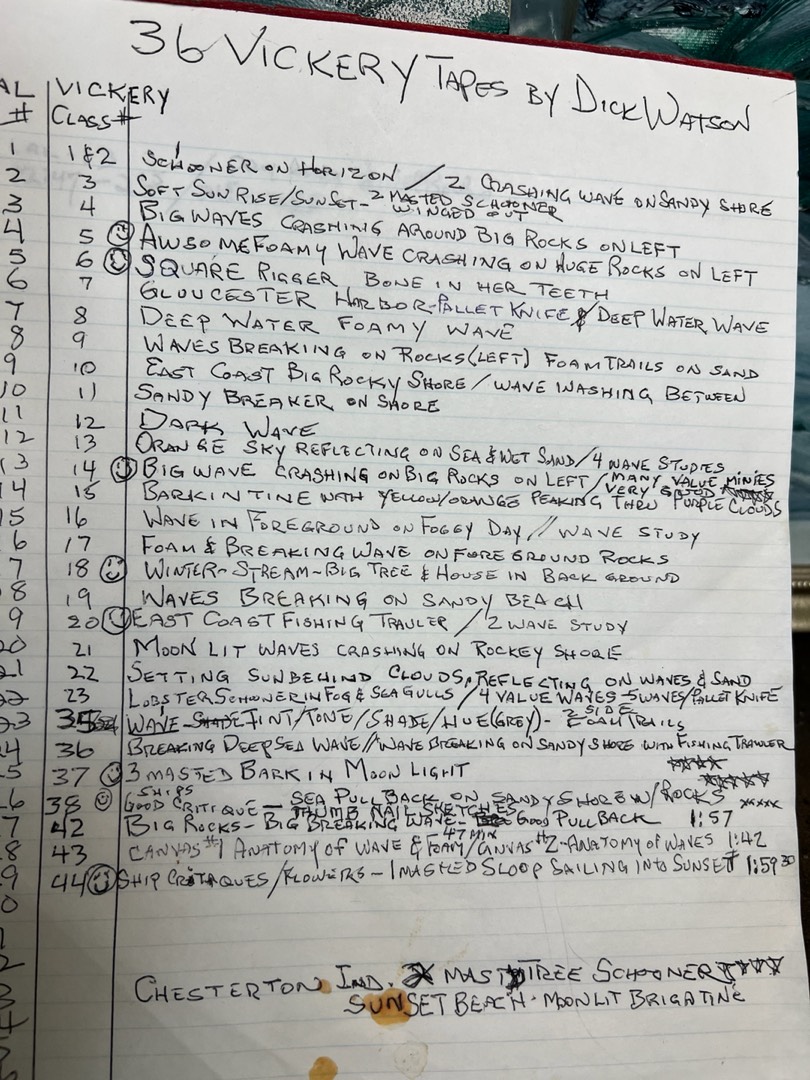 36 VICKERY TAPES BY DICK WATSON
AL # VICKERY CLASS#
1 1&2 SCHOONER ON HORIZON / 2 CRASHING WAVE ON SANDY SHORE
2 3 SOFT SUN RISE/SUNSET - 2 MASTED SCHOONER WINGED OUT
3 4 BIG WAVES CRASHING AROUND BIG ROCKS ON LEFT
4 5 AWSOME FOAMY WAVE CRASHING ON HUGE ROCKS ON LEFT
5 6 SQUARE RIGGER BONE IN HER TEETH
6 7 GLOUCESTER HARBOR-PALLET KNIFE & DEEP WATER WAVE
7 8 DEEP WATER FOAMY WAVE
8 9 WAVES BREAKING ON ROCKS (LEFT) FOAM TRAILS ON SAND
9 10 EAST COAST BIG ROCKY SHORE / WAVE WASHING BETWEEN
10 11 SANDY BREAKER ON SHORE
11 12 DARK WAVE
12 13 ORANGE SKY REFLECTING ON SEA & WET SAND / 4 WAVE STUDIES
13 14 BIG WAVE CRASHING ON BIG ROCKS ON LEFT / MANY VALUE MINIES VERY GOOD
14 15 BARKINTINE WITH YELLOW/ORANGE PEAKING THRU PURPLE CLOUDS
15 16 WAVE IN FOREGROUND ON FOGGY DAY // WAVE STUDY
6 17 FOAM & BREAKING WAVE ON FOREGROUND ROCKS
7 18 WINTER-STREAM-BIG TREE & HOUSE IN BACK GROUND
8 19 WAVES BREAKING ON SANDY BEACH
9 20 EAST COAST FISHING TRAULER / 2 WAVE STUDY
20 21 MOON LIT WAVES CRASHING ON ROCKEY SHORE
21 22 SETTING SUN BEHIND CLOUDS, REFLECTING ON WAVES & SAND
22 23 LOBSTER SCHOONER IN FOG & SEAGULLS / 4 VALUE WAVES-5 WAVES/PALLET KNIFE
23 35 WAVE - TINT/TONE/SHADE/HUE (GREY) - 2 SIDE FOAM TRAILS
4 36 BREAKING DEEP SEA WAVE // WAVE BREAKING ON SANDY SHORE WITH FISHING TRAWLER
5 37 3 MASTED BARK IN MOON LIGHT
6 38 SHIPS GOOD CRITIQUE - SEA PULL BACK ON SANDY SHORE W/ROCKS THUMB NAIL SKETCHES
7 42 BIG ROCKS - BIG BREAKING WAVE - GOOD PULL BACK 1:57
8 43 CANVAS #1 ANATTOMY OF WAVE & FOAM 47 MIN / CANVAS #2 - ANATOMY OF WAVES 1:42
9 44 SHIP CRITAQUES / FLOWERS - 1 MASTED SLOOP SAILING INTO SUNSET 1:59 30
0
1
2
3
4
CHESTERTON IND. MAST TREE SCHOONER
SUNSET BEACH - MOONLIT BRIGATINE